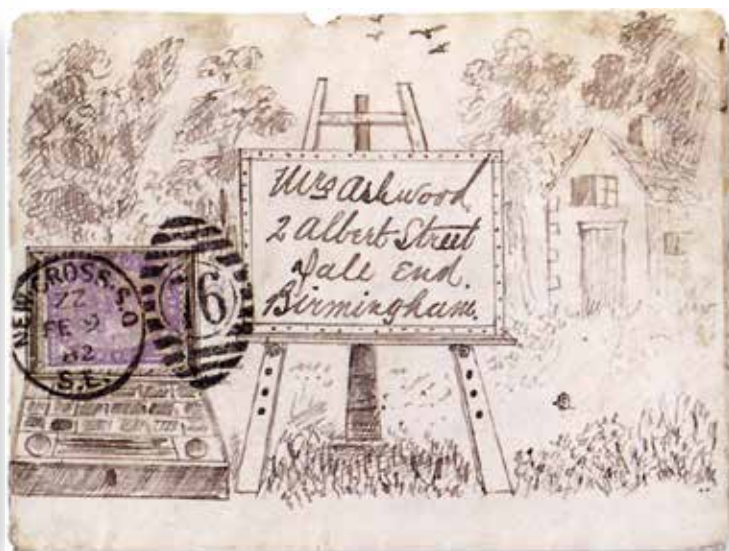 Mrs Ashwood
2 Albert Street
Dale End.
Birmingham.
NEW CROSS. S.O
ZZ
FE 9
82
S.E.
76